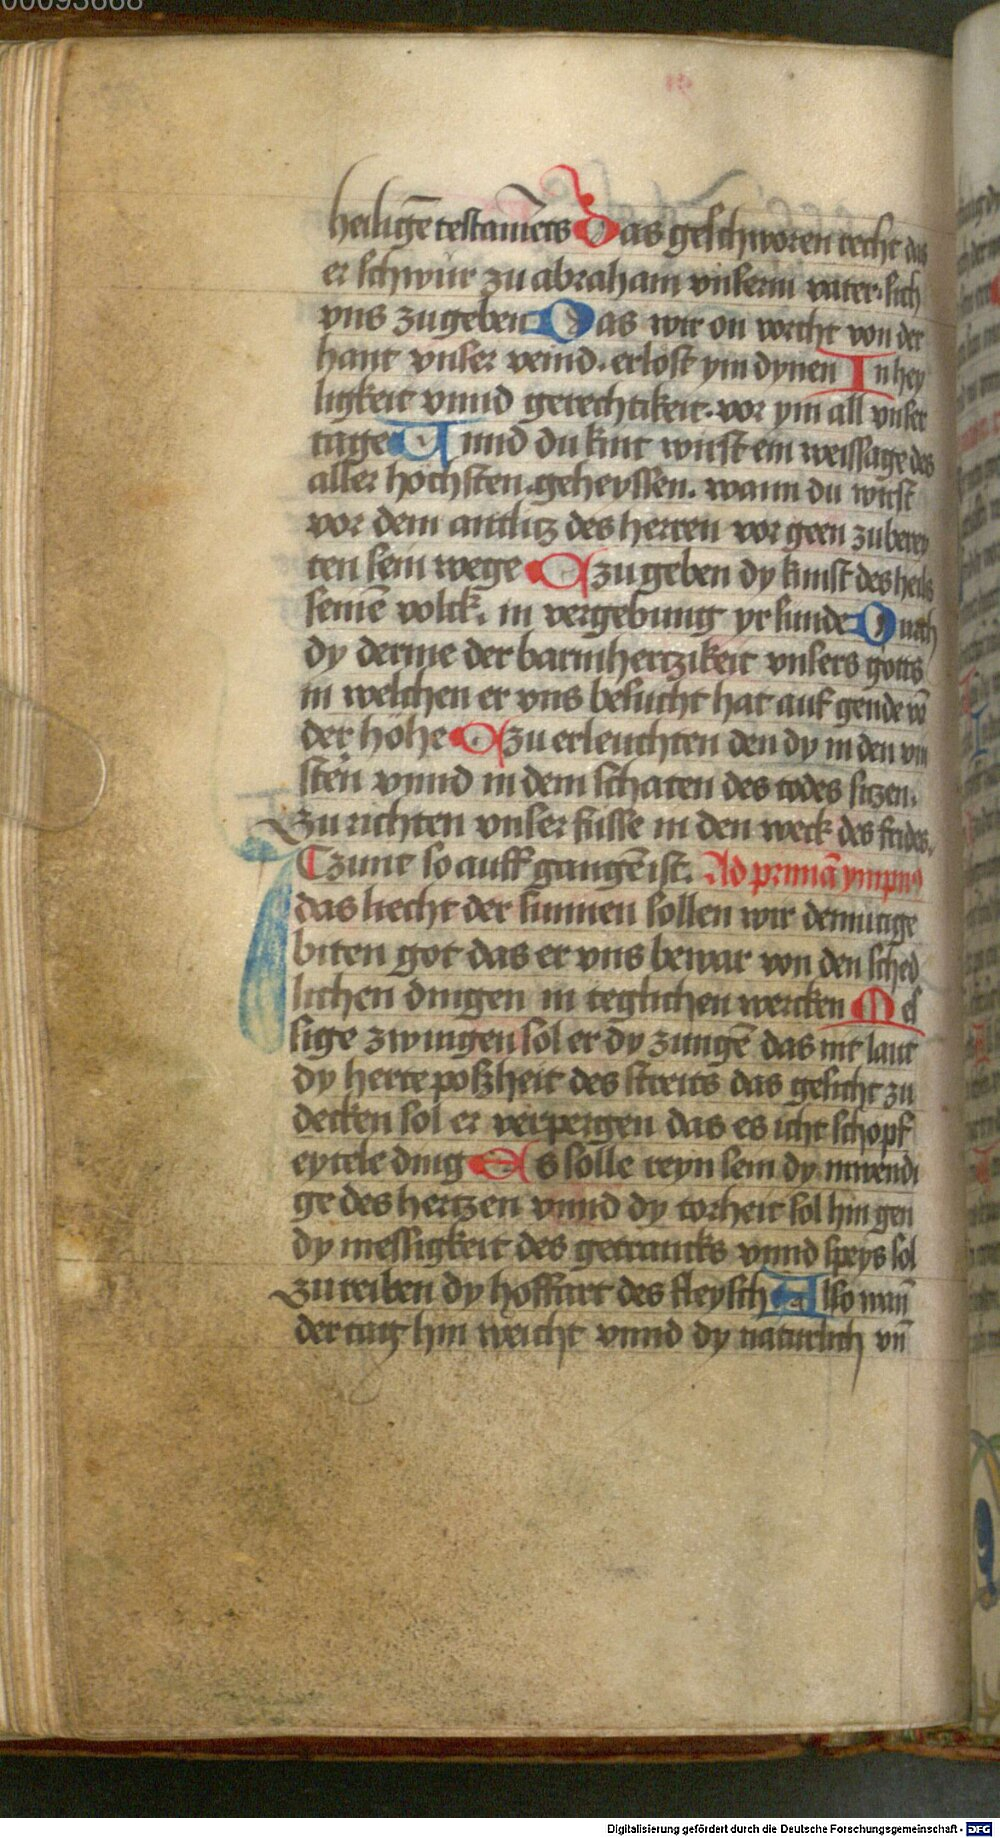 00093668
heiligē testamēts Das geschworen recht das
er schwur zu abraham vnserm vater. sich
vns zugeben Das wir on vorcht von der
hant vnser veind. erlost ym dynen In hey
ligkeit vnnd gerechtikeit. vor ym all vnser
tage Unnd du kint wirst ein weissage des
aller hochsten. geheyssen. wann du wirst
vor dem antlitz des herren vor geen zu berey
ten sein wege Czu geben dy kunst des heils
seinē volck. in vergebung yr sunde Durch
dy derme der barmhertzikeit vnsers gotts
in welchen er vns besucht hat auf gende vō
der höhe Czu erleuchten den dy in den vin
stern vnnd in dem schaten des todes sitzen.
Zu richten vnser fusse in den weck des frides.
Czunt so auff gangē ist. Ad primā ympnus
das liecht der sunnen sollen wir demutige
biten got das er vns bewar von den sched
lichen dingen in teglichen wercken Mes
sige zwingen sol er dy zungē das nit laut
dy herte poßheit des streits das gesicht zu
decken sol er verpergen das es icht schopf
eytele ding Es solle reyn sein dy inwendi
ge des hertzen vnnd dy torheit sol hin gen
dy messigkeit des getrancks vnnd speys sol
zu treiben dy hoffart des fleysch Also wañ
der tag hin weicht vnnd dy naturlich vñ
Digitalisierung gefördert durch die Deutsche Forschungsgemeinschaft - DFG